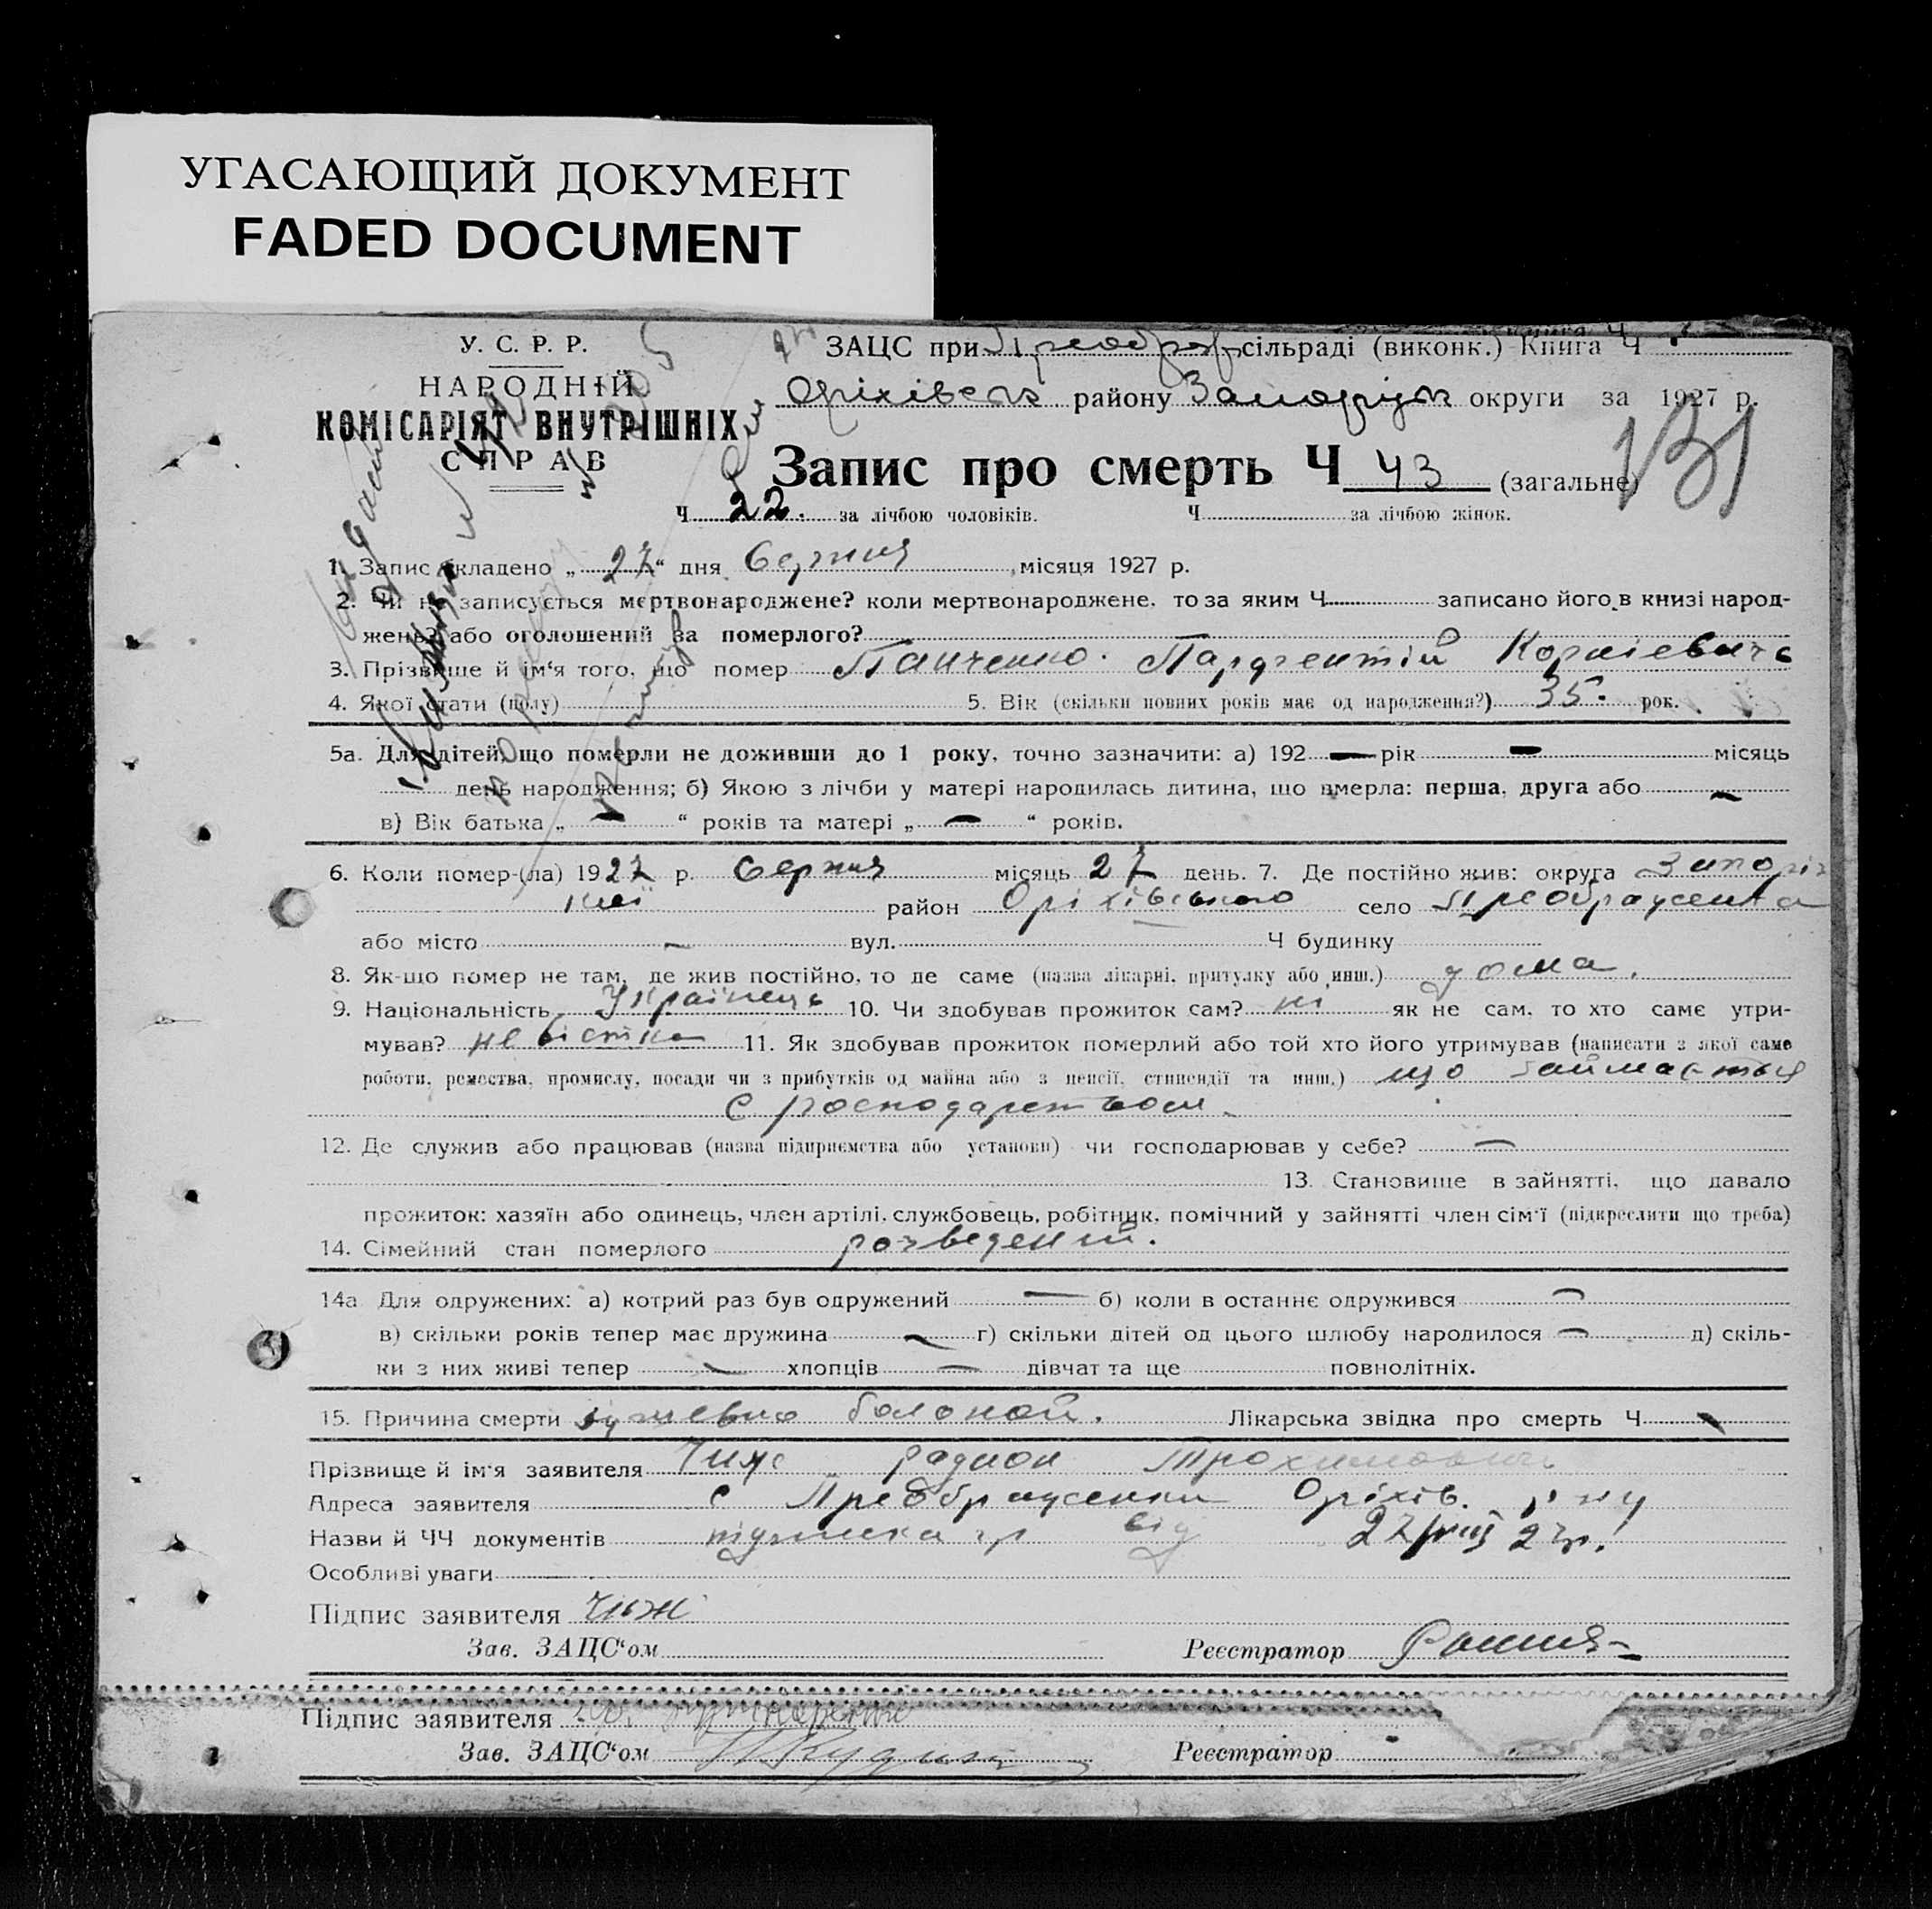 УГАСАЮЩИЙ ДОКУМЕНТ
FADED DOCUMENT
У. С. Р. Р.
НАРОДНІЙ
КОМІСАРІЯТ ВНУТРІШНІХ
СПРАВ
ЗАЦС при сільраді (виконк.) Книга Ч
Оріхівськ району округи за 1927 р.
Запис про смерть Ч 43 (загальне)
131
Ч 22. за лічбою чоловіків. Ч за лічбою жінок.
1. Запис складено „ 27 “ дня Серпня місяця 1927 р.
2. Чи не записується мертвонароджене? коли мертвонароджене, то за яким Ч записано його в книзі народ-
жень? або оголошений за померлого?
3. Прізвище й ім‘я того, що помер Панченко Парфентій Корнієвичъ
4. Якої стати (полу) 5. Вік (скільки повних років має од народження?) 35. рок.
5а. Для дітей, що померли не доживши до 1 року, точно зазначити: а) 192 — рік — місяць
день народження; б) Якою з лічби у матері народилась дитина, що вмерла: перша, друга або —
в) Вік батька „ — “ років та матері „ — “ років.
6. Коли помер-(ла) 1927 р. Серпня місяць 27 день. 7. Де постійно жив: округа Запоріз
кої район Оріхівського село Преображенка
або місто — вул. Ч будинку
8. Як-що помер не там, де жив постійно, то де саме (назва лікарні, притулку або инш.) дома.
9. Національність Українець 10. Чи здобував прожиток сам? ні як не сам, то хто саме утри-
мував? невістка 11. Як здобував прожиток померлий або той хто його утримував (написати з якої саме
роботи, ремества, промислу, посади чи з прибутків од майна або з пенсії, стипендії та инш.) що займається
12. Де служив або працював (назва підприємства або установи) чи господарював у себе? —
13. Становище в зайнятті, що давало
прожиток: хазяїн або одинець, член артілі, службовець, робітник, помічний у зайнятті член сім‘ї (підкреслити що треба)
14. Сімейний стан померлого розведений.
14а Для одружених: а) котрий раз був одружений — б) коли в останнє одружився —
в) скільки років тепер має дружина — г) скільки дітей од цього шлюбу народилося — д) скіль-
ки з них живі тепер — хлопців — дівчат та ще повнолітніх.
15. Причина смерти Лікарська звідка про смерть Ч —
Прізвище й ім‘я заявителя Чиж Радион Трохимович
Адреса заявителя с Преображенки Оріхів. р-ну
Назви й ЧЧ документів підписка від 27/VIII 27р.
Особливі уваги
Підпис заявителя Чиж
Зав. ЗАЦС‘ом Реєстратор
Підпис заявителя
Зав. ЗАЦС‘ом Реєстратор